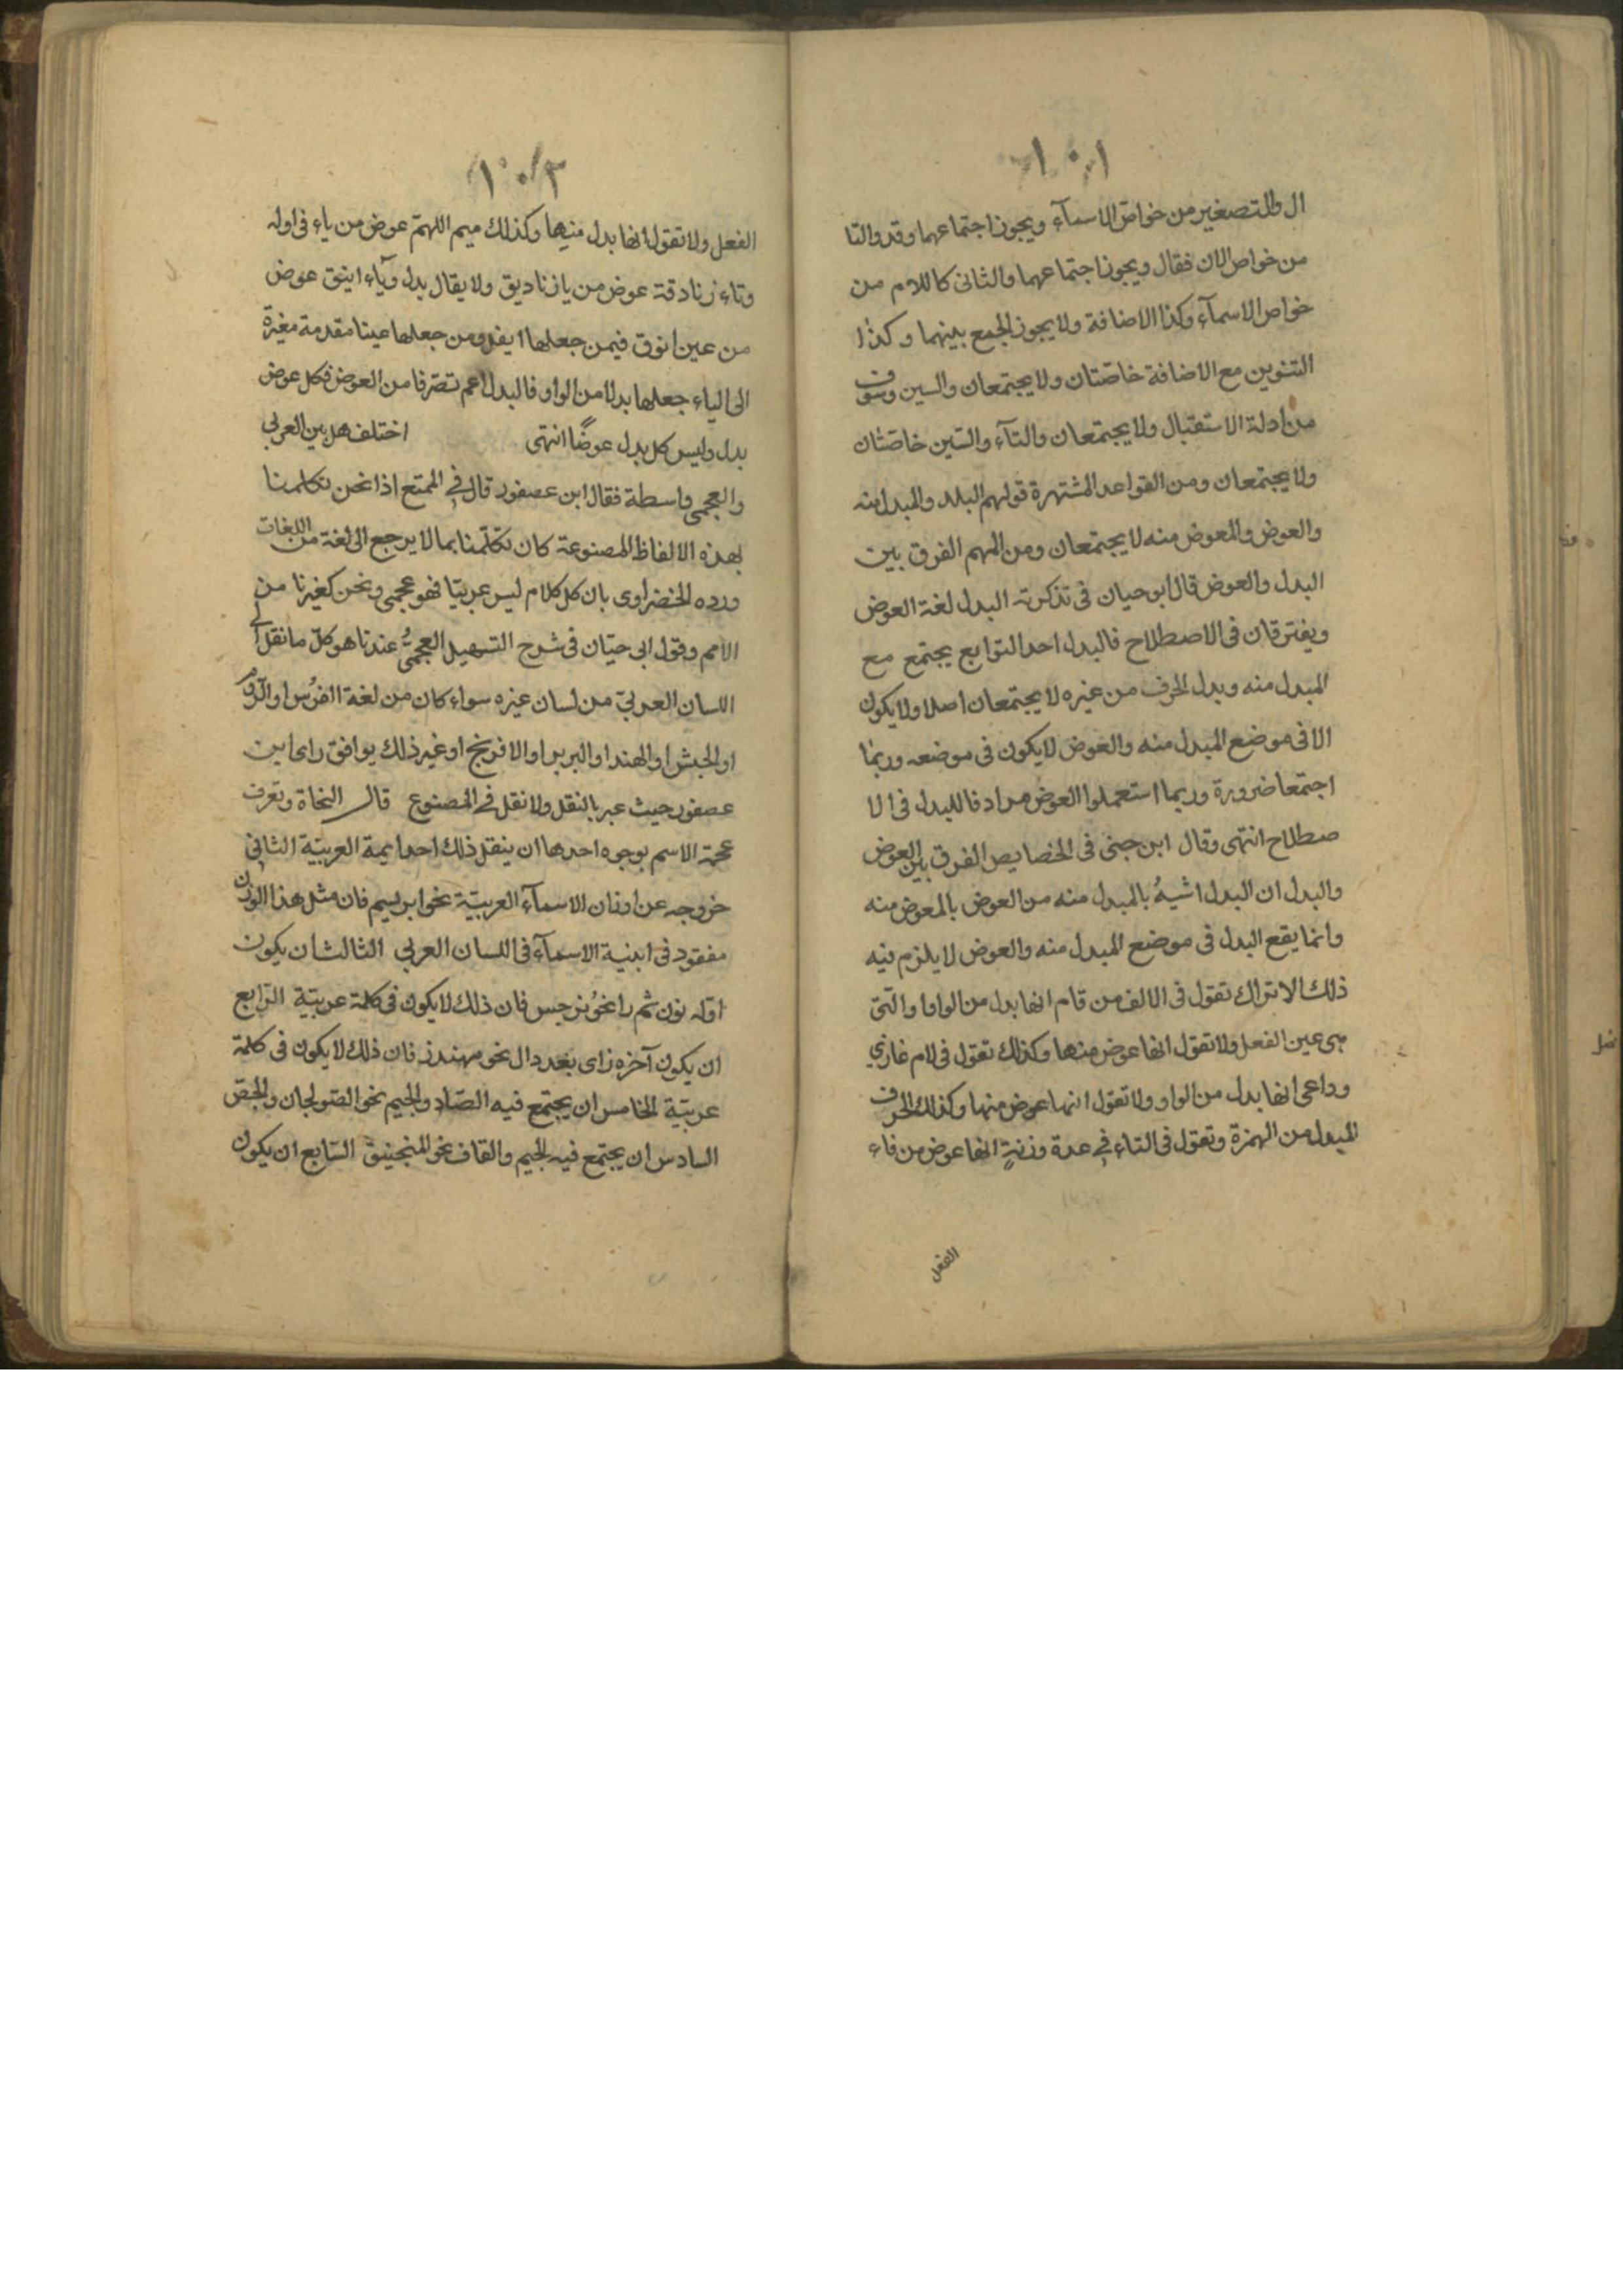 ١٠١
ال والتصغير من خواص الاسمآء ويجوز اجتماعهما وقد والتا
من خواص الان فقال ويجوز اجتماعهما والثانى كاللام من
خواص الاسمآء وكذا الاضافة ولا يجوز الجمع بينهما وكذا
التنوين مع الاضافة خاصّتان ولا يجتمعان والسين وسوف
من ادلة الاستقبال ولا يجتمعان والتآء والسّين خاصّتان
ولا يجتمعان ومن القواعد المشتهرة قولهم البدل والمبدل منه
والعوض والمعوض منه لا يجتمعان ومن المهم الفرق بين
البدل والعوض قال ابو حيان فى تذكرته البدل لغة العوض
ويفترقان فى الاصطلاح فالبدل احد التوابع يجتمع مع
المبدل منه وبدل الحرف من غيره لا يجتمعان اصلا ولا يكون
الا فى موضع المبدل منه والعوض لا يكون فى موضعه وربما
اجتمعا ضرورة وربما استعملوا العوض مرادفا للبدل فى الا
صطلاح انتهى وقال ابن جنى فى الخصايص الفرق بين العوض
والبدل ان البدل اشبهُ بالمبدل منه من العوض بالمعوض منه
وانما يقع البدل فى موضع المبدل منه والعوض لا يلزم فيه
ذلك الا تراك تقول فى الالف من قام انها بدل من الواوا والتى
هى عين الفعل ولا تقول انها عوض منها وكذلك تقول فى لام غازي
وداعى انها بدل من الواو ولا تقول انها عوض منها وكذلك الحرف
المبدل من الهمزة وتقول فى التاء فى عدة وزنةٍ انها عوض من فاء
الفعل
١٠٢
الفعل ولا تقول انها بدل منها وكذلك ميم اللهمّ عوض من ياء فى اوله
وتاء زنادقة عوض من يا زناديق ولا يقال بدل ويآء اينق عوض
من عين انوق فيمن جعلها ايفل ومن جعلها عينا مقدمة مغيرة
الى الياء جعلها بدلا من الواو فالبدل اعم تصرّفا من العوض فكل عوض
بدل وليس كل بدل عوضًا انتهى اختلف هل بين العربي
والعجمى واسطة فقال ابن عصفور قال فى الممتع اذا نحن تكلمنا
بهذه الالفاظ المصنوعة كان تكلّمنا بما لا يرجع الى لغة من اللغات
ورده الخضراوى بان كل كلام ليس عربيّا فهو عجمى ونحن كغيرنا من
الامم وقول ابى حيّان فى شرح التسهيل العجمىُّ عندنا هو كلّ ما نقل الى
اللسان العربىّ من لسان غيره سواء كان من لغة الفرُس او الرّوم
او الحبش او الهند او البربر او الافرنج او غير ذلك يوافق راى ابن
عصفور حيث عبر بالنقل ولا نقل فى المصنوع قال النحاة وتعرف
عجمة الاسم بوجوه احدها ان ينقل ذلك احد ايمة العربيّة الثانى
خروجه عن اوزان الاسمآء العربيّة نحو ابريسم فان مثل هذا الوزن
مفقود فى ابنية الاسمآء فى اللسان العربى الثالث ان يكون
اوّله نون ثم را نحوُ نرجس فان ذلك لا يكون فى كلمة عربيّة الرّابع
ان يكون آخره زاى بعد دال نحو مهندز فان ذلك لا يكون فى كلمة
عربيّة الخامس ان يجتمع فيه الصّاد والجيم نحو الصّولجان والجصّ
السادس ان يجتمع فيه الجيم والقاف نحو المنجنيق السّابع ان يكون